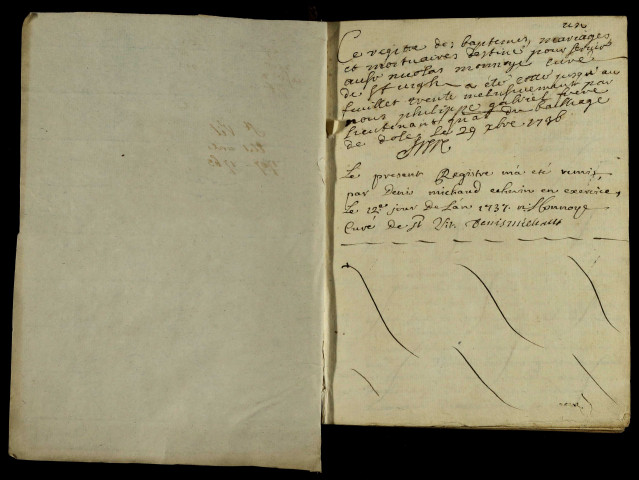 un
Ce registre des baptemes, mariages
et mortuaires destiné pour servir
au Sr nicolas monnoye curé
de St a été cotté jusqu'au
feuillet trente inclusivement par
nous philippe gabriel
Lieutenant gnal du bailliage
de dole, Le 29 xbre 1736
Le present Registre m'a été remis
par Denis michaud echevin en exercice,
Le 12e jour de Lan 1737. n. Monnoye
Curé de St Vit. Denis michaud